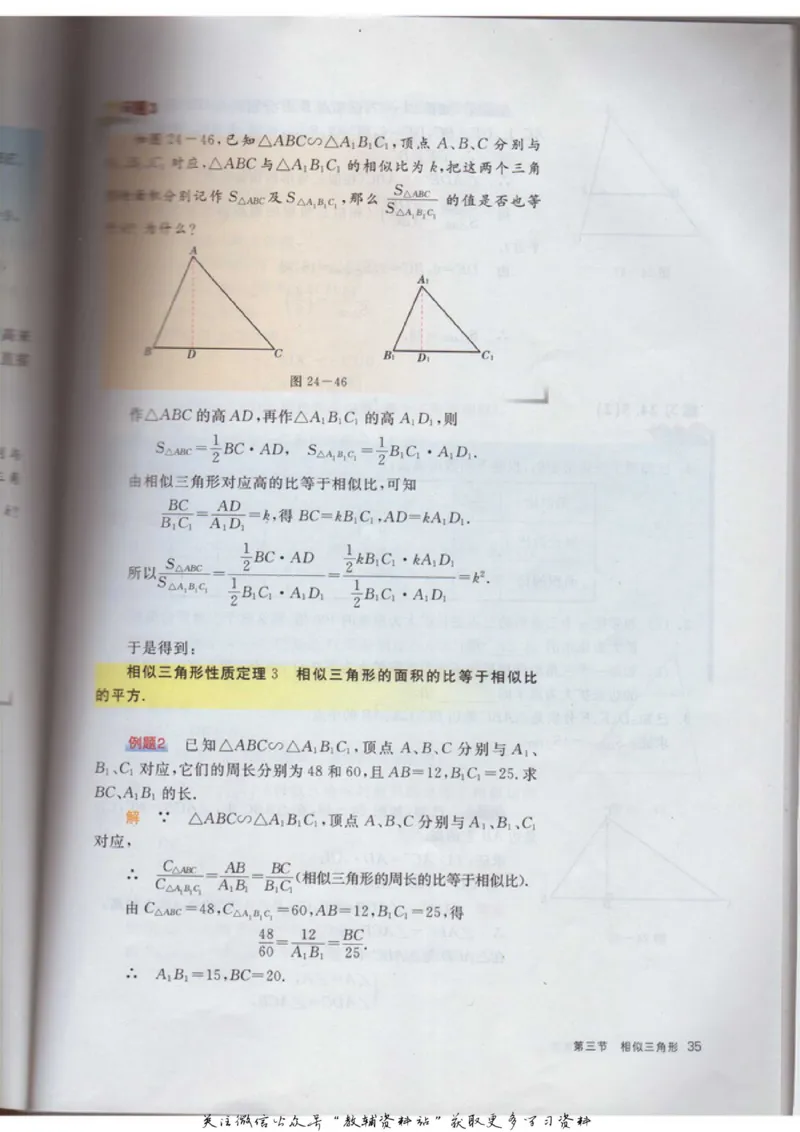 如图24-46,已知△ABC∽△A₁B₁C₁,顶点 A、B、C 分别与
对应,△ABC 与△A₁B₁C₁ 的相似比为 k,把这两个三角
面积分别记作 S△ABC 及 S△A₁B₁C₁,那么 S△ABC/S△A₁B₁C₁ 的值是否也等
为什么?
A
B
D
C
A₁
B₁
D₁
C₁
图 24-46
作△ABC 的高 AD,再作△A₁B₁C₁ 的高 A₁D₁,则
S△ABC=1/2 BC·AD, S△A₁B₁C₁=1/2 B₁C₁·A₁D₁.
由相似三角形对应高的比等于相似比,可知
BC/B₁C₁=AD/A₁D₁=k,得 BC=kB₁C₁,AD=kA₁D₁.
所以 S△ABC/S△A₁B₁C₁=(1/2 BC·AD)/(1/2 B₁C₁·A₁D₁)=(1/2 kB₁C₁·kA₁D₁)/(1/2 B₁C₁·A₁D₁)=k².
于是得到:
相似三角形性质定理 3 相似三角形的面积的比等于相似比
的平方.
例题2 已知△ABC∽△A₁B₁C₁,顶点 A、B、C 分别与 A₁、
B₁、C₁ 对应,它们的周长分别为 48 和 60,且 AB=12,B₁C₁=25.求
BC、A₁B₁ 的长.
解 ∵ △ABC∽△A₁B₁C₁,顶点 A、B、C 分别与 A₁、B₁、C₁
对应,
∴ C△ABC/C△A₁B₁C₁=AB/A₁B₁=BC/B₁C₁(相似三角形的周长的比等于相似比).
由 C△ABC=48,C△A₁B₁C₁=60,AB=12,B₁C₁=25,得
48/60=12/A₁B₁=BC/25.
∴ A₁B₁=15,BC=20.
第三节 相似三角形 35
关注微信公众号"教辅资料站"获取更多学习资料